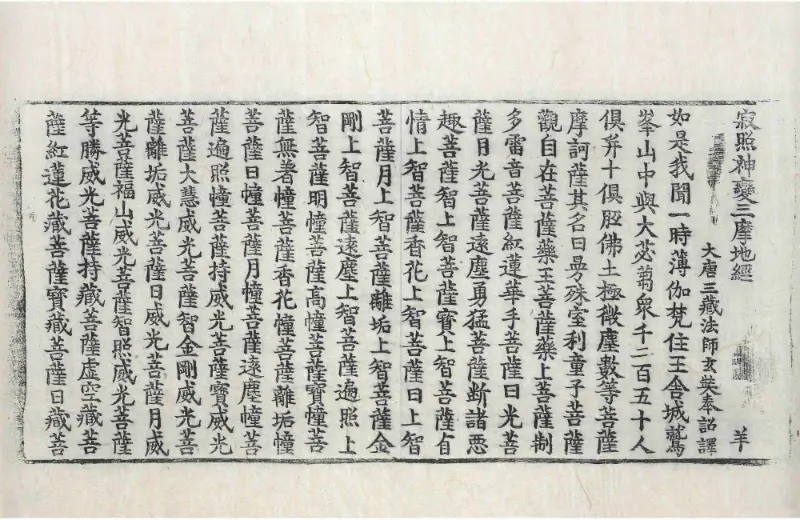 寂照神變三摩地經 羊
大唐三藏法師玄奘奉詔譯
如是我聞一時薄伽梵住王舍城鷲
峯山中與大苾蒭衆千二百五十人
俱并十俱胝佛土極微塵數等菩薩
摩訶薩其名曰曼殊室利童子菩薩
觀自在菩薩藥王菩薩藥上菩薩制
多雷音菩薩紅蓮華手菩薩日光菩
薩月光菩薩遠塵勇猛菩薩斷諸惡
趣菩薩智上智菩薩寶上智菩薩貞
情上智菩薩香花上智菩薩日上智
菩薩月上智菩薩離垢上智菩薩金
剛上智菩薩遠塵上智菩薩遍照上
智菩薩明幢菩薩高幢菩薩寶幢菩
薩無著幢菩薩香花幢菩薩離垢幢
菩薩日幢菩薩月幢菩薩遠塵幢菩
薩遍照幢菩薩持威光菩薩寶威光
菩薩大慧威光菩薩智金剛威光菩
薩離垢威光菩薩日威光菩薩月威
光菩薩福山威光菩薩智照威光菩薩
等勝威光菩薩持藏菩薩虛空藏菩
薩紅蓮花藏菩薩寶藏菩薩日藏菩